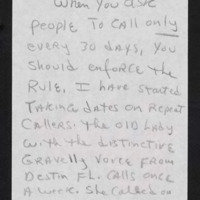 When you ask
people To CALL only
every 30 days, you
should enforce the
Rule. I have started
TAKing dates on Repeat
CALLers. the OLD LAdy
with the distinctive
GRAvelly Voice FROM
Destin FL. CALLs once
A week. She CALLed on